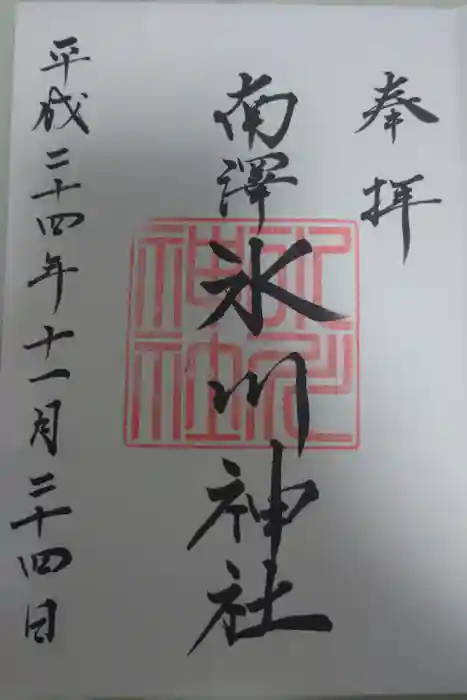 奉拝
南澤氷川神社
氷川神社
平成二十四年十一月二十四日